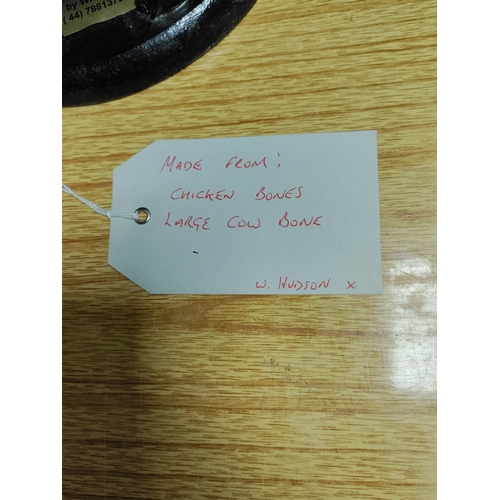 MADE FROM:
CHICKEN BONES
LARGE COW BONE
W. HUDSON x